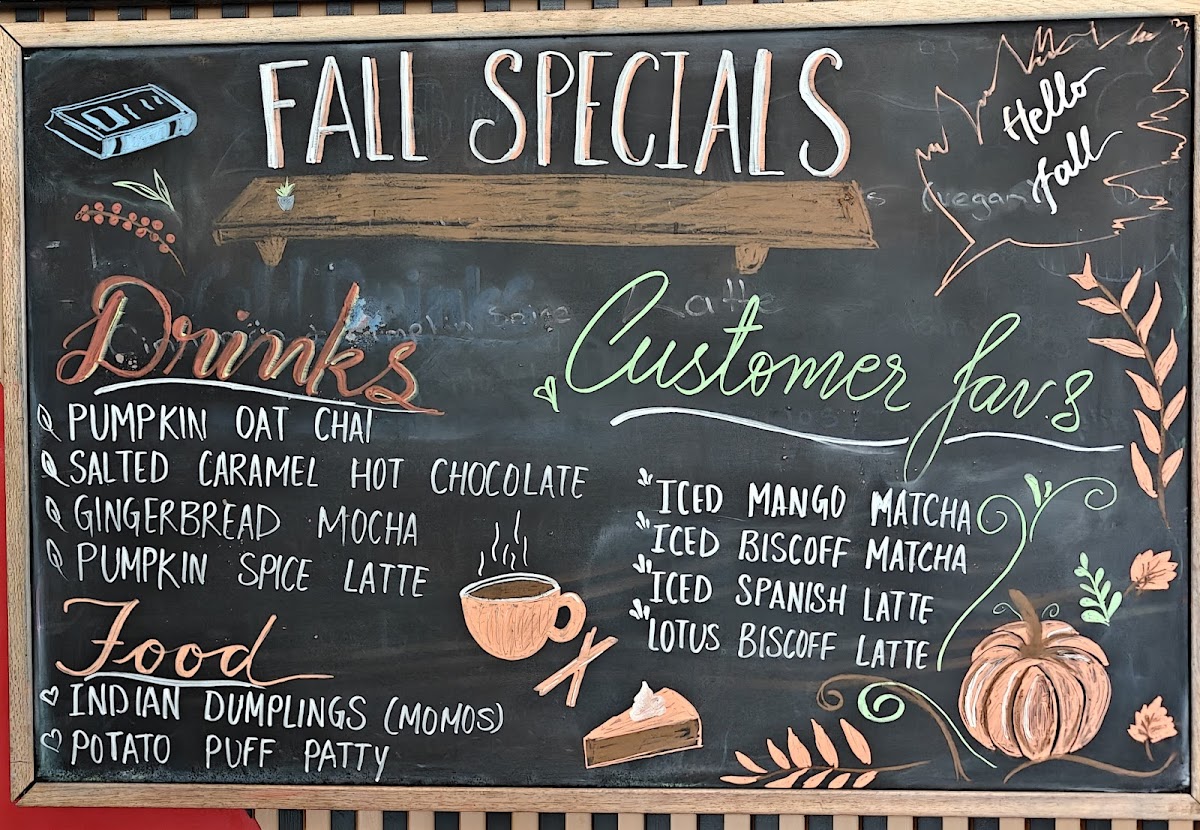 FALL SPECIALS
Hello
fall
(vegan
Drinks
PUMPKIN OAT CHAI
SALTED CARAMEL HOT CHOCOLATE
GINGERBREAD MOCHA
PUMPKIN SPICE LATTE
Food
INDIAN DUMPLINGS (MOMOS)
POTATO PUFF PATTY
Customer favs
ICED MANGO MATCHA
ICED BISCOFF MATCHA
ICED SPANISH LATTE
LOTUS BISCOFF LATTE